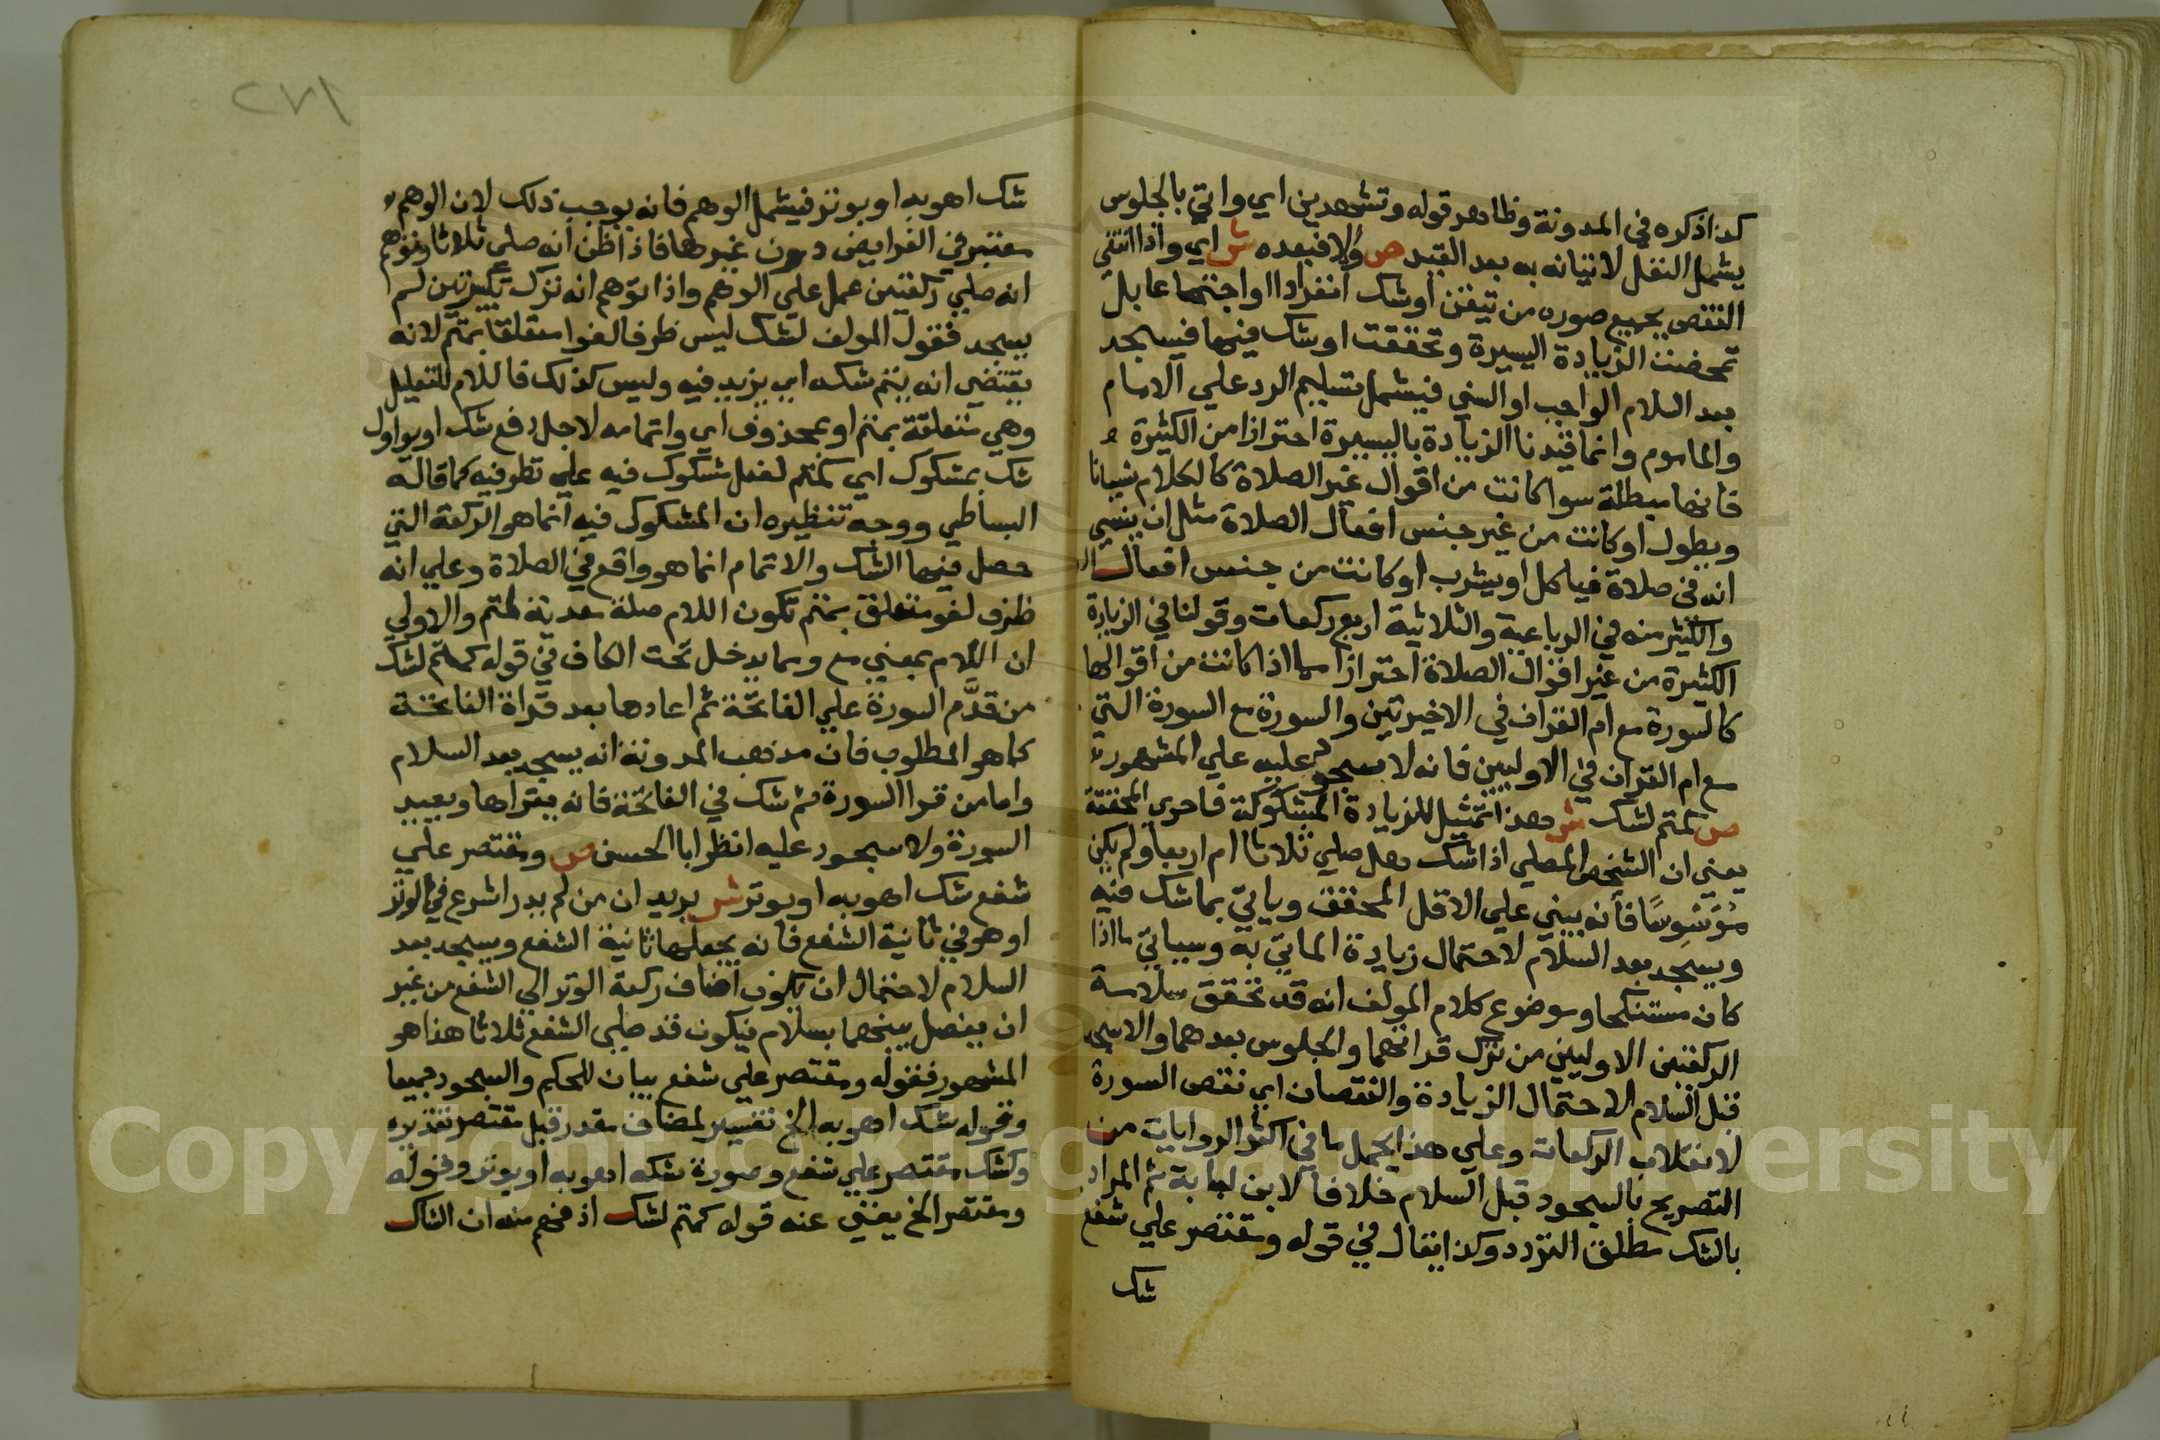 كذا ذكره في المدونة وظاهر قوله وتشهدين اي واتي بالجلوس
يشمل النفل لاتيانه به بعد القيد ص والا فبعده ش اي واذا انتفى
النقص بجميع صوره من تيقن او شك انفرادا او اجتماعا بل
تمحضت الزيادة اليسيرة وتحققت او شك فيها فيسجد
بعد السلام الواجب او السني فيشمل تسليم الرد على الامام
والماموم وانما قيدنا الزيادة باليسيرة احترازا من الكثيرة
فانها مبطلة سوا كانت من اقوال غير الصلاة كالكلام نسيانا
ويطول او كانت من غير جنس افعال الصلاة مثل ان ينسي
انه في صلاة فياكل او يشرب او كانت من جنس افعال
والكثير منه في الرباعية والثلاثية اربع ركعات وقولنا في الزيادة
الكثيرة من غير اقوال الصلاة احترازا مما اذا كانت من اقوالها
كالسورة مع ام القران في الاخيرتين والسورة مع السورة التي
مع ام القران في الاوليين فانه لا سجود عليه علي المشهور
ص كمتم لشك ش هذا تمثيل للزيادة المشكوكة فاحري المحققة
يعني ان الشخص المصلي اذا شك هل صلي ثلاثا ام اربعا ولم يكن
مُوَسْوِسًا فانه يبني علي الاقل المحقق وياتي بما شك فيه
ويسجد بعد السلام لاحتمال زيادة الماتي به وسياتي ما اذا
كان مستنكحا وموضوع كلام المولف انه قد تحقق سلامة
الركعتين الاوليين من ترك قراتهما والجلوس بعدهما والا سجد
قبل السلام لاحتمال الزيادة والنقصان اي نقص السورة
لانقلاب الركعات وعلي هذا يحمل ما في اكثر الروايات من
التصريح بالسجود قبل السلام خلافا لابن لبابة ثم المراد
بالشك مطلق التردد وكذا يقال في قوله ومقتصر علي شفع
شك
٢٧١
شك اهو به او بوتر فيشمل الوهم فانه يوجب ذلك لان الوهم
معتبر في الفرايض دون غيرها فاذا ظن انه صلي ثلاثا وتوهم
انه صلي ركعتين عمل علي الوهم واذا توهم انه ترك تكبيرتين لم
يسجد فقول المولف لشك ليس ظرفا لغوا متعلقا بمتم لانه
يقتضي انه يتم شكه اي يزيد فيه وليس كذلك فاللام للتعليل
وهي متعلقة بمتم او بمحذوف اي واتمامه لاجل دفع شك او يواول
شك بمشكوك اي كمتم لفعل مشكوك فيه علي تطرفيه كما قاله
البساطي ووجه تنظيره ان المشكوك فيه انما هو الركعة التي
حصل فيها الشك والاتمام انما هو واقع في الصلاة وعلي انه
ظرف لغو متعلق بمتم تكون اللام صلة معدية لمتم والاولي
ان اللام بمعني مع ومما يدخل تحت الكاف في قوله كمتم لشك
من قدَّم السورة علي الفاتحة ثم اعادها بعد قراة الفاتحة
كما هو المطلوب فان مذهب المدونة انه يسجد بعد السلام
واما من قرا السورة ثم شك في الفاتحة فانه يقراها ويعيد
السورة ولا سجود عليه انظر ابا الحسن ص ومقتصر علي
شفع شك اهو به او بوتر ش يريد ان من لم يدر اشرع في الوتر
او هو في ثانية الشفع فانه يجعلها ثانية الشفع ويسجد بعد
السلام لاحتمال ان يكون اضاف ركعة الوتر الي الشفع من غير
ان يفصل بينهما بسلام فيكون قد صلي الشفع ثلاثا هذا هو
المشهور فقوله ومقتصر علي شفع بيان للحكم والسجود جميعا
وقوله شك اهو به الخ تفسير لمضاف مقدر قبل مقتصر تقديره
وكشك مقتصر علي شفع وصورة شكه اهو به او بوتر وقوله
ومقتصر الخ يغني عنه قوله كمتم لشك اذ فهم منه ان الشاك
Copyright © King Saud University